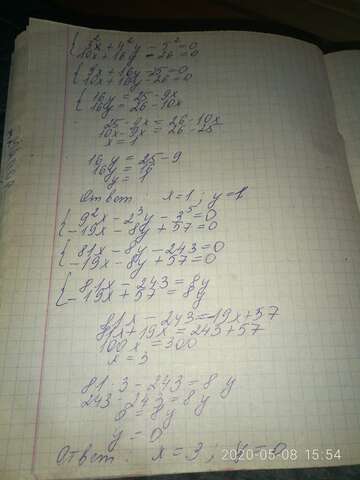 3²x + 4²y - 5² = 0
10x + 16y - 26 = 0
9x + 16y - 25 = 0
10x + 16y - 26 = 0
16y = 25 - 9x
16y = 26 - 10x
25 - 9x = 26 - 10x
10x - 9x = 26 - 25
x = 1
16y = 25 - 9
16y = 16
y = 1
Ответ: x = 1; y = 1
9²x - 2³y - 3⁵ = 0
-19x - 8y + 57 = 0
81x - 8y - 243 = 0
-19x - 8y + 57 = 0
81x - 243 = 8y
-19x + 57 = 8y
81x - 243 = -19x + 57
81x + 19x = 243 + 57
100x = 300
x = 3
81 · 3 - 243 = 8y
243 - 243 = 8y
0 = 8y
y = 0
Ответ: x = 3; y = 0
2020-05-08 15:54